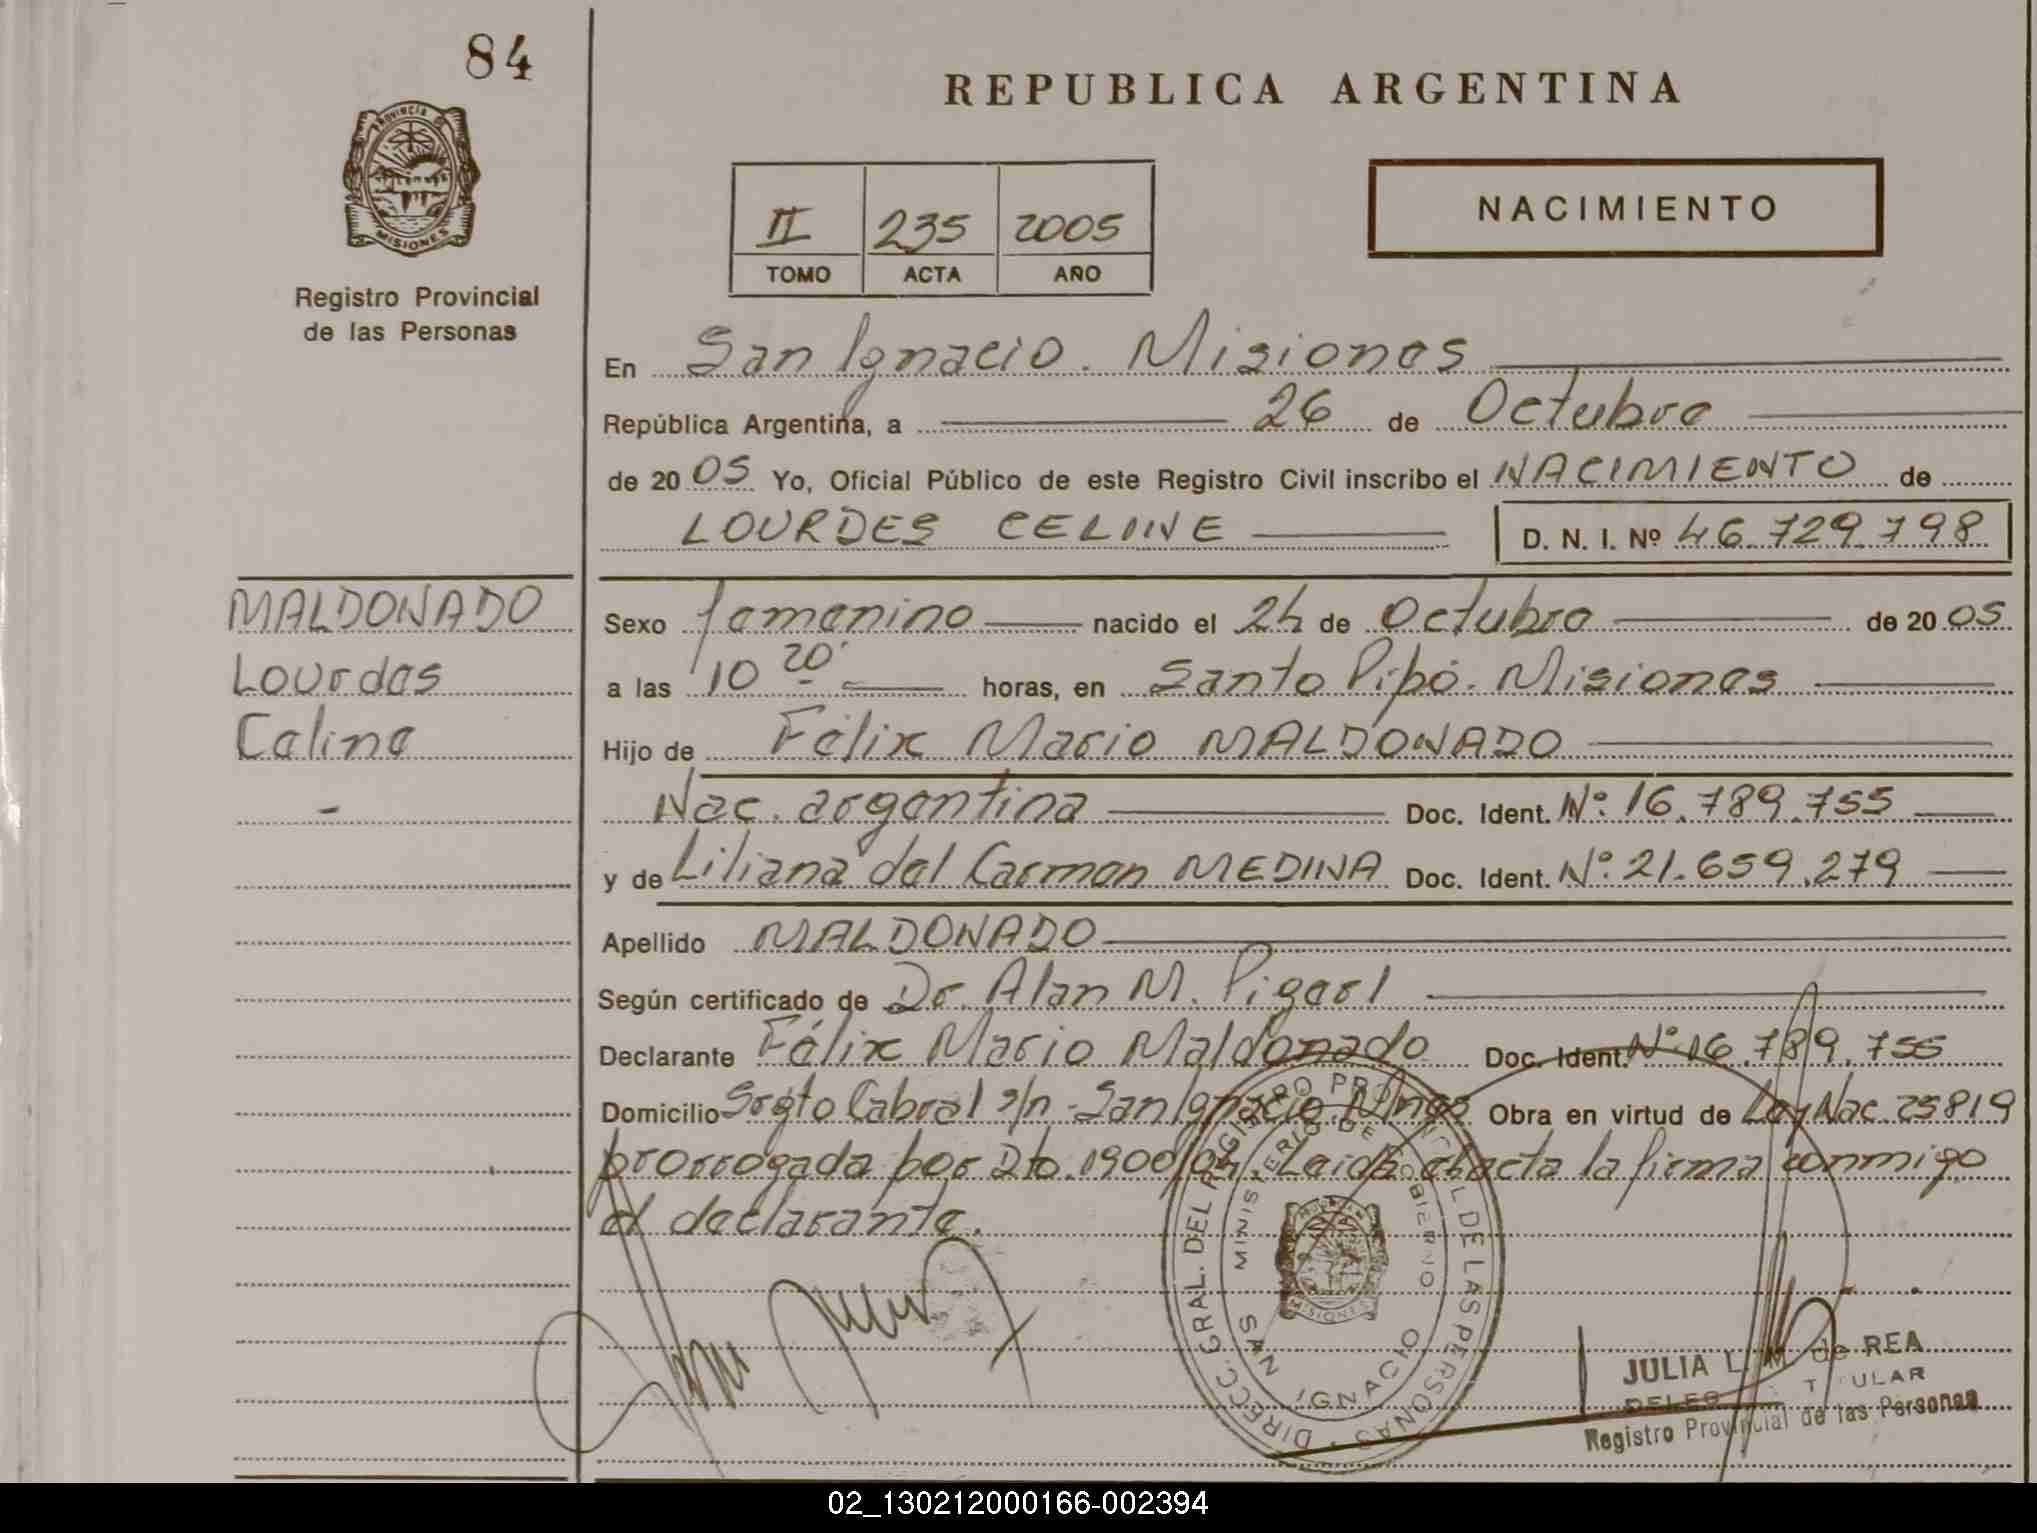 84
REPUBLICA ARGENTINA
PROVINCIA DE
MISIONES
NACIMIENTO
II 235 2005
TOMO ACTA AÑO
Registro Provincial
de las Personas
En San Ignacio. Misiones
República Argentina, a 26 de Octubre
de 20 05 Yo, Oficial Público de este Registro Civil inscribo el NACIMIENTO de
LOURDES CELINE D. N. I. Nº 46.729.798
MALDONADO
Lourdes
Celine
-
Sexo femenino nacido el 24 de Octubre de 20 05
a las 10 20' horas, en Santo Pipó. Misiones
Hijo de Félix Mario MALDONADO
Nac. argentina Doc. Ident. Nº 16.789.755
y de Liliana del Carmen MEDINA Doc. Ident. Nº 21.659.279
Apellido MALDONADO
Según certificado de Dr. Alan M.
Declarante Félix Mario Maldonado Doc. Ident. Nº 16.789.755
Domicilio Srgto Cabral s/n - San Ignacio Mnes Obra en virtud de Ley Nac. 25819
prorrogada por Dto. 1900/04. Leida el acta la firma conmigo
el declarante.
DIRECC. GRAL. DEL REGISTRO PROVINCIAL DE LAS PERSONAS
MINISTERIO DE GOBIERNO
MISIONES
SAN IGNACIO
JULIA L. M de REA
TITULAR
Registro Provincial de las Personas
02_130212000166-002394